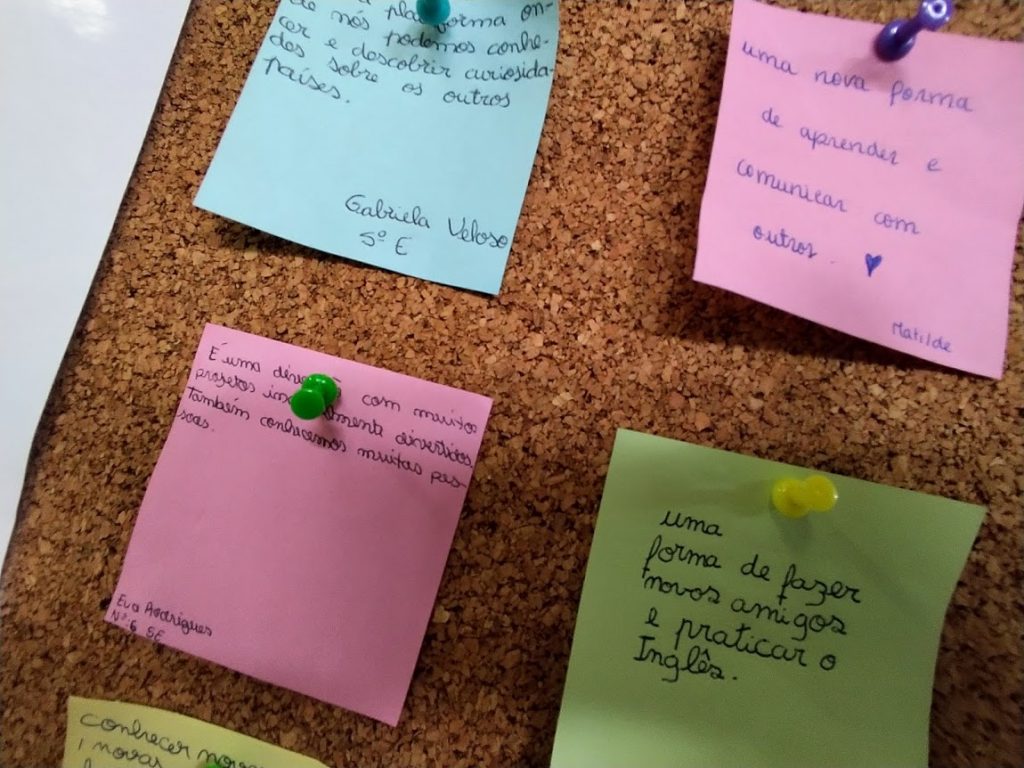 plataforma on-
de nós podemos conhe-
cer e descobrir curiosida-
des sobre os outros
países.
Gabriela Veloso
5º E
uma nova forma
de aprender e
comunicar com
outros. ♥
Matilde
É uma com muitos
projetos divertidos.
Também conhecemos muitas pes-
soas.
Eva Rodrigues
Nº:6 5E
uma
forma de fazer
novos amigos
e praticar o
Inglês.
conhecer novas
novas